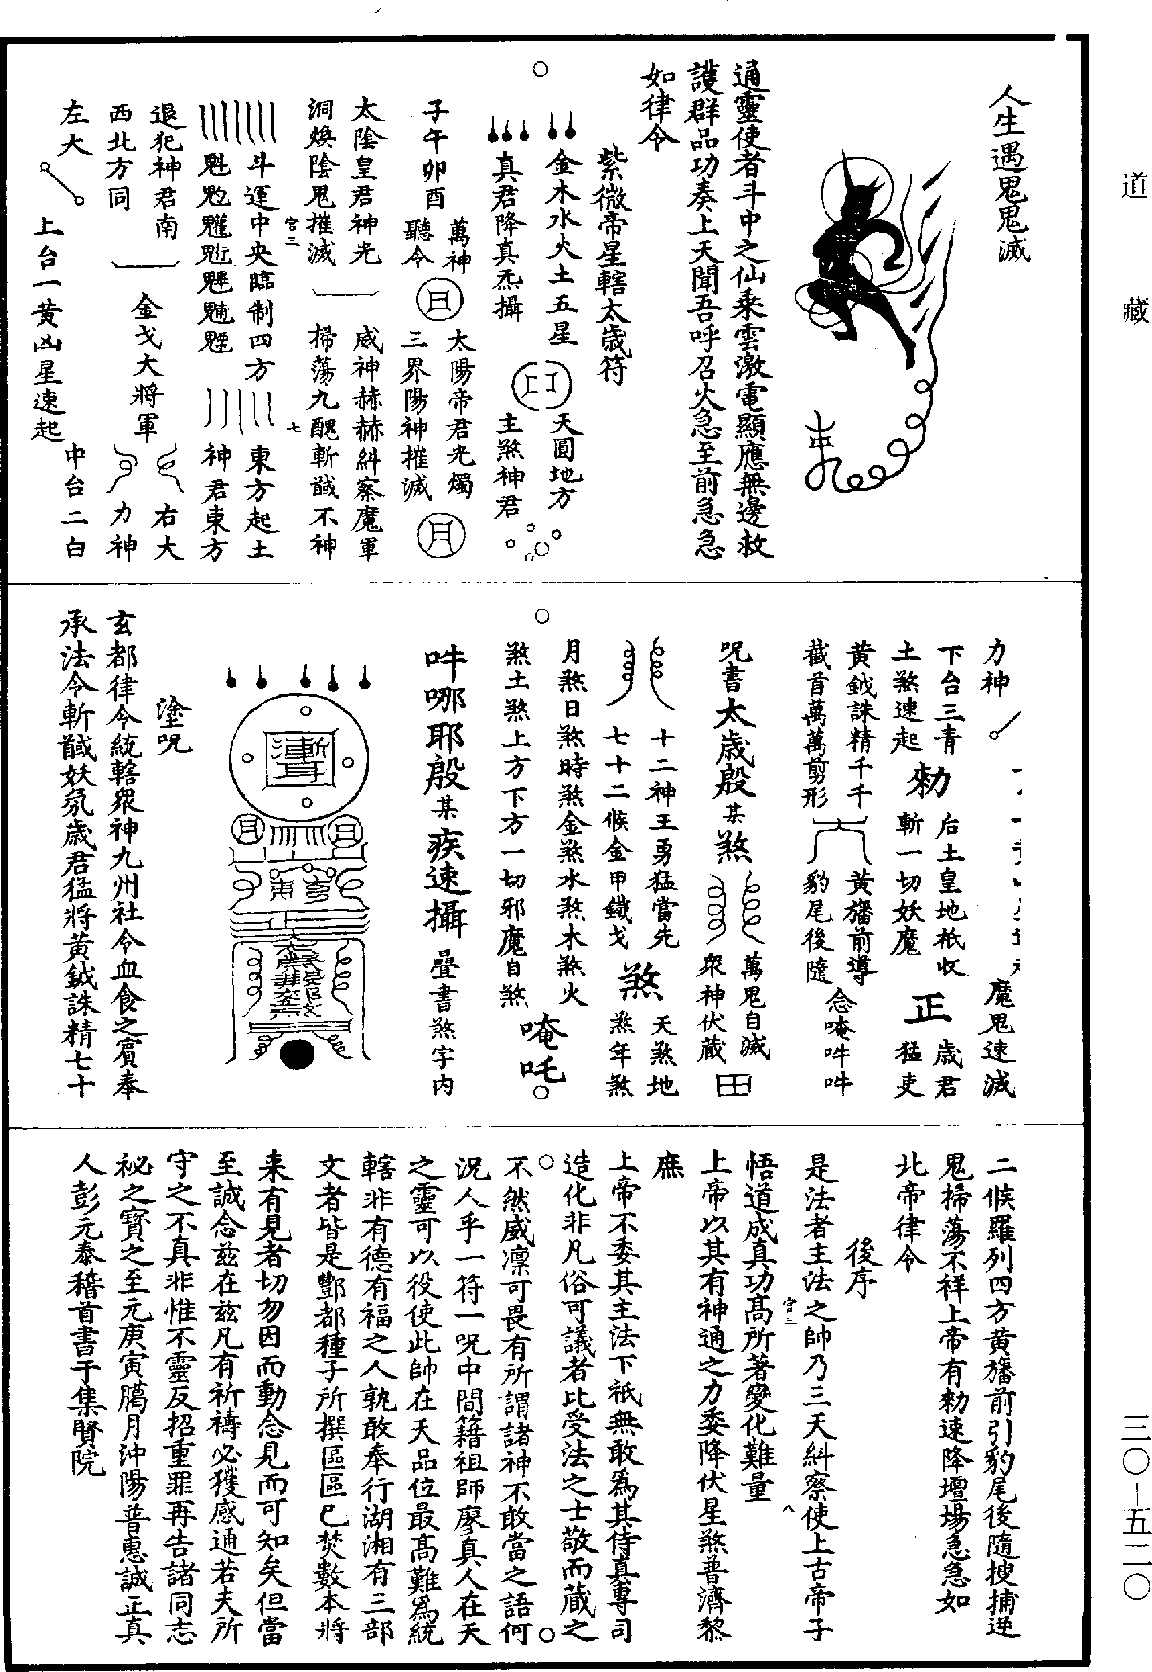 道藏
三〇—五二〇
人生遇鬼鬼滅
通靈使者斗中之仙乘雲激電顯應無邊救
護群品功奏上天聞吾呼召火急至前急急
如律令
紫微帝星轄太歲符
金木水火土五星
天圓地方
真君降真炁攝
主煞神君
子午卯酉
萬神
聽令
太陽帝君光燭
三界陽神摧滅
太陰皇君神光
威神赫赫糾察魔軍
洞煥陰鬼摧滅
掃蕩九醜斬馘不神
宫三
七
斗運中央臨制四方
東方起土
魁𩲃魓䰢魒
神君東方
退犯神君南
西北方同
金戈大將軍
右大
力神
左大
上台一黃凶星速起
中台二白
力神
魔鬼速滅
下台三青
土煞速起
勑
后土皇地祇收
斬一切妖魔
正
歲君
猛吏
黃鉞誅精千千
截首萬萬剪形
黃旛前導
豹尾後隨
念唵吽吽
呪書
太歲殷某煞
萬鬼自滅
眾神伏藏
十二神王勇猛當先
七十二候金甲鐵戈
煞
天煞地
煞年煞
月煞日煞時煞金煞水煞木煞火
煞土煞上方下方一切邪魔自煞
唵吒
吽哪耶殷某疾速攝
疊書煞字內
塗呪
玄都律令統轄眾神九州社令血食之賓奉
承法令斬馘妖氛歲君猛將黃鉞誅精七十
二候羅列四方黃旛前引豹尾後隨搜捕逆
鬼掃蕩不祥上帝有勑速降壇場急急如
北帝律令
後序
是法者主法之帥乃三天糾察使上古帝子
宫三
八
悟道成真功高所著變化難量
上帝以其有神通之力委降伏星煞普濟黎
庶
上帝不委其主法下祇無敢為其侍真專司
造化非凡俗可議者比受法之士敬而藏之
不然威凛可畏有所謂諸神不敢當之語何
況人乎一符一呪中間籍祖師廖真人在天
之靈可以役使此帥在天品位最高難為統
轄非有德有福之人孰敢奉行湖湘有三部
文者皆是酆都種子所撰區區已焚數本將
來有見者切勿因而動念見而可知矣但當
至誠念兹在兹凡有祈禱必獲感通若夫所
守之不真非惟不靈反招重罪再告諸同志
祕之寶之至元庚寅臈月沖陽普惠誠正真
人彭元泰稽首書于集賢院